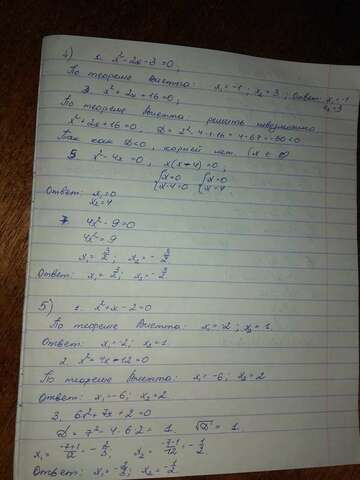 4) 1. x²-2x-3=0;
По теореме Виетта: x₁=-1; x₂=3; Ответ: x₁=-1 x₂=3
3. x²+2x+16=0;
По теореме Виетта: решить невозможно
x²+2x+16=0, D=2²-4·1·16=4-64=-60<0
Так как D<0, корней нет. (x ∈ ∅)
5 x²-4x=0, x(x-4)=0;
{x=0 {x=0
{x-4=0 {x=4
Ответ: x₁=0
x₂=4
7 4x²-9=0
4x²=9
x₁=3/2, x₂=-3/2
Ответ: x₁=3/2; x₂=-3/2
5) 1. x²+x-2=0
По теореме Виетта: x₁=-2; x₂=1.
Ответ: x₁=-2; x₂=1.
2. x²+4x-12=0
По теореме Виетта: x₁=-6; x₂=2
Ответ: x₁=-6; x₂=2
3. 6x²+7x+2=0
D=7²-4·6·2=1 √D=1.
x₁=-7+1/12=-2/3; x₂=-7-1/12=-1/2
Ответ: x₁=-2/3; x₂=-1/2